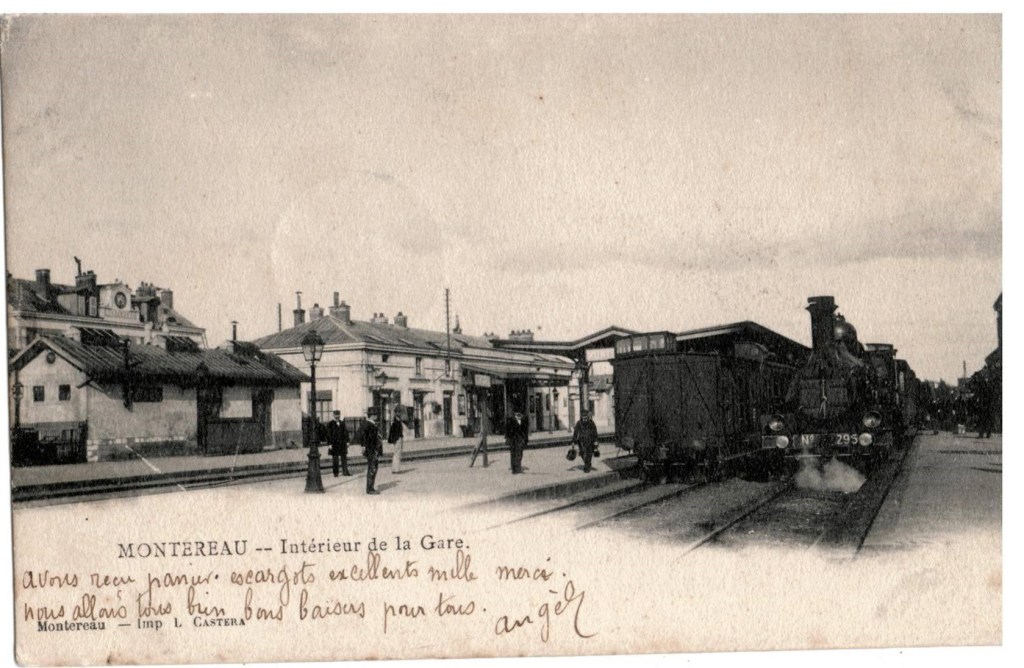 Nº 295
MONTEREAU -- Intérieur de la Gare.
avons reçu panier. escargots excellents mille merci.
nous allons tous bien bons baisers pour tous.
angèle
Montereau — Imp L CASTERA